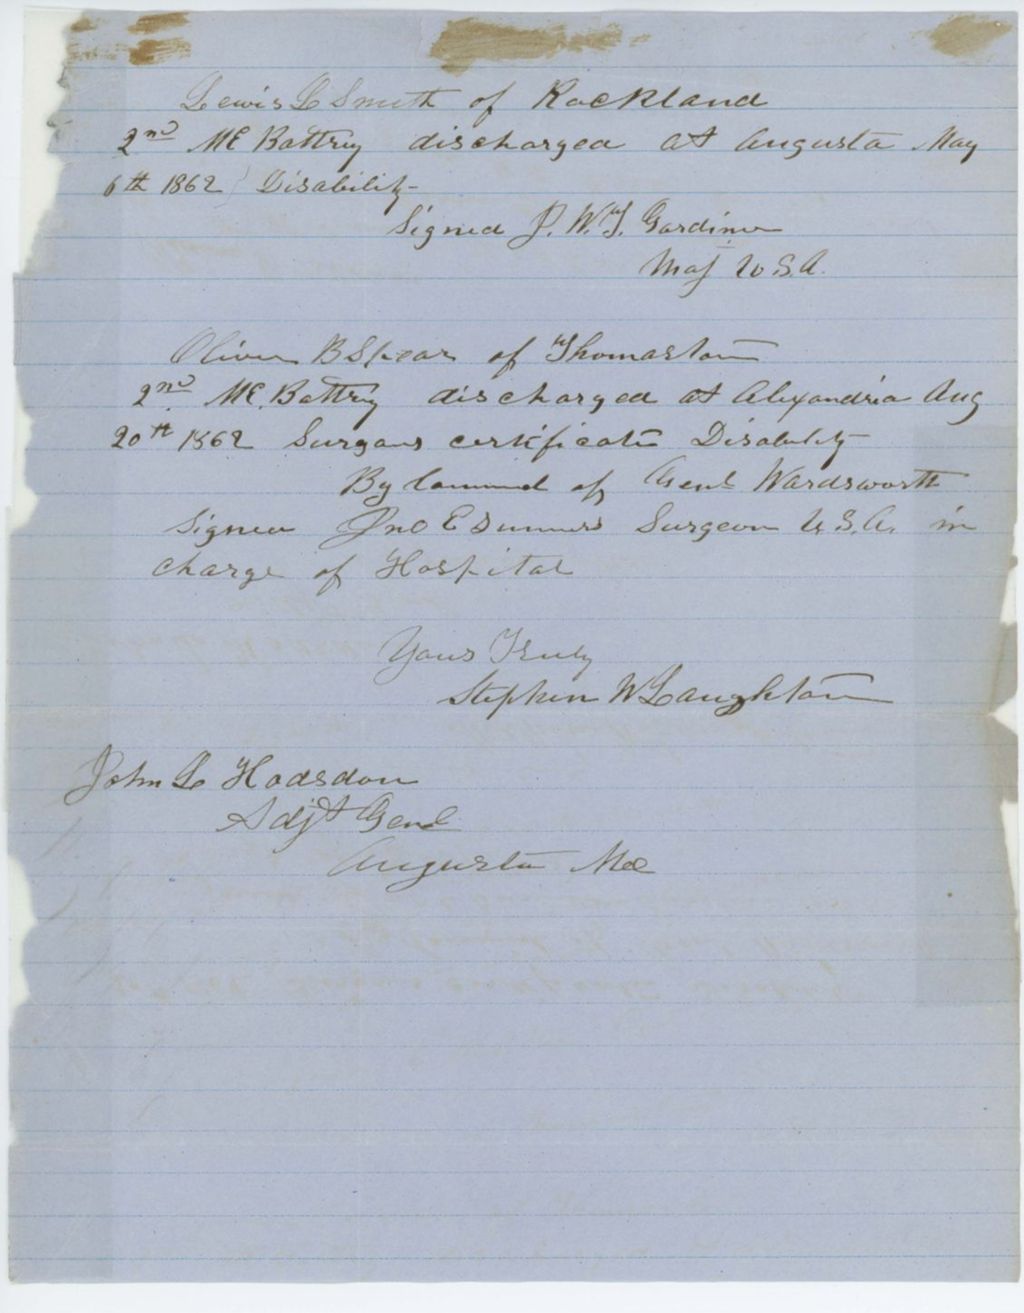 Lewis L Smith of Rockland
2nd Me Battry discharged at Augusta May
6th 1862 Disability-
Signed J. W. T. Gardiner
Maj U S. A.
Oliver B Spear of Thomaston
2nd Me. Battry discharged at Alexandria Aug
20th 1862 Surgans certificate Disability
By Command of Genl Wardsworth
Signed Jno E Summers Surgeon U. S. A. in
charge of Hospital
Yours Truly
Stephen W Laughton
John L Hodsdon
Adjt Genl
Augusta Me